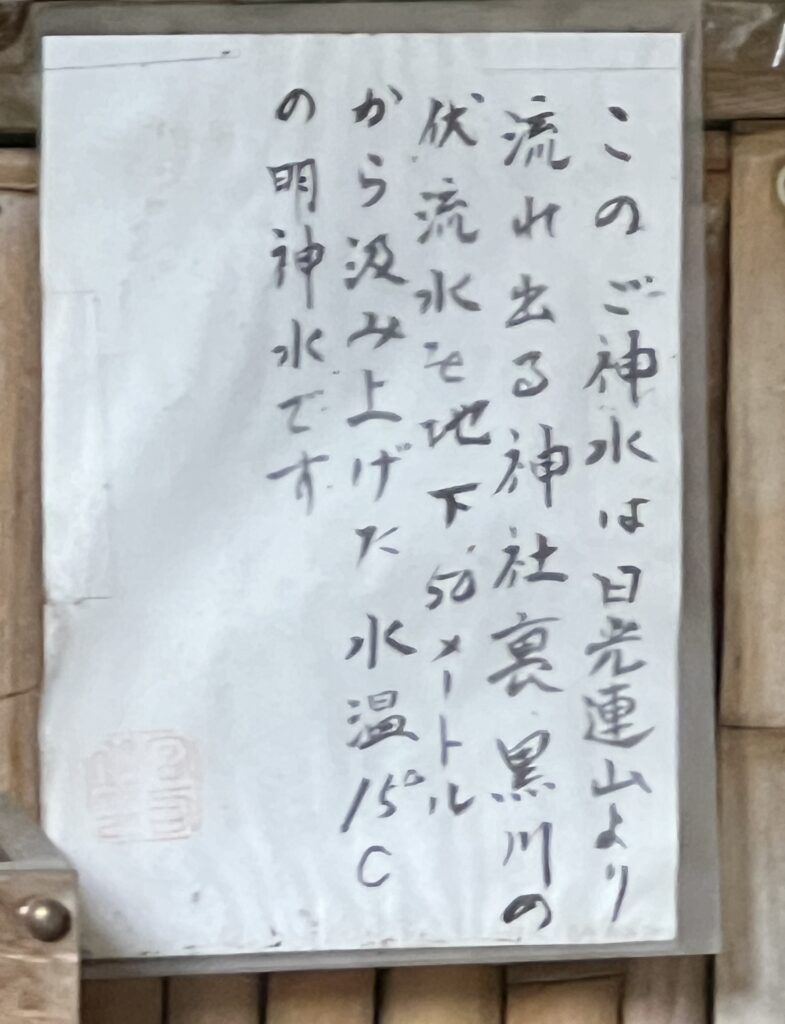 このご神水は日光連山より
流れ出る神社裏黒川の
伏流水を地下50メートル
から汲み上げた水温15°C
の明神水です